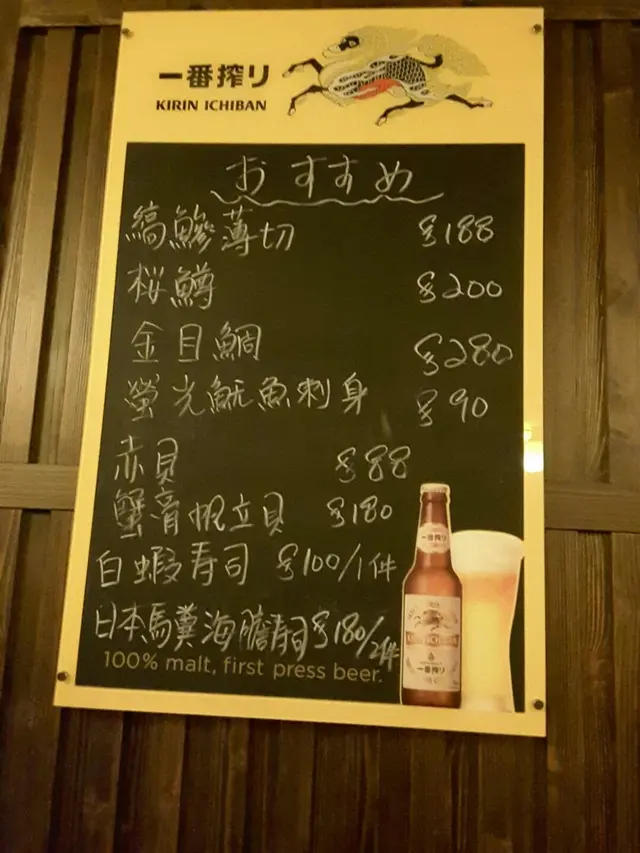 一番搾り
KIRIN ICHIBAN
おすすめ
縞鰺薄切 $188
桜鱒 $200
金目鯛 $280
螢光魷魚刺身 $90
赤貝 $88
蟹膏帆立貝 $180
白蝦寿司 $100/1件
日本馬糞海膽寿司 $180/2件
100% malt, first press beer.
一番搾り
一番搾り